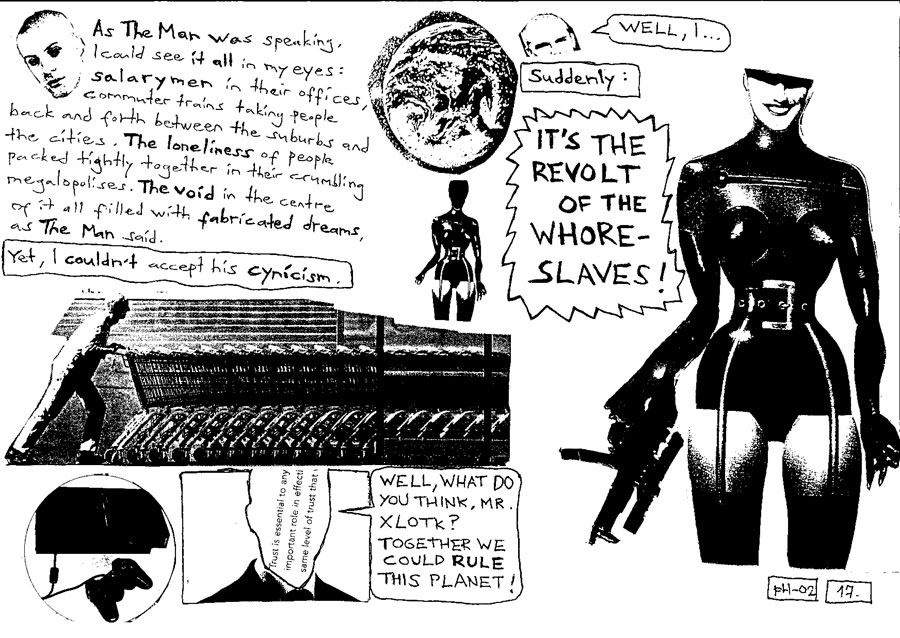 As The Man was speaking,
I could see it all in my eyes:
salarymen in their offices,
commuter trains taking people
back and forth between the suburbs and
the cities. The loneliness of people
packed tightly together in their crumbling
megalopolises. The void in the centre
of it all filled with fabricated dreams,
as The Man said.
Yet, I couldn't accept his cynicism.
WELL, I...
Suddenly:
IT'S THE
REVOLT
OF THE
WHORE-
SLAVES!
Trust is essential to any
important role in effecti
same level of trust that
WELL, WHAT DO
YOU THINK, MR.
XLOTK?
TOGETHER WE
COULD RULE
THIS PLANET!
pH-02
17.